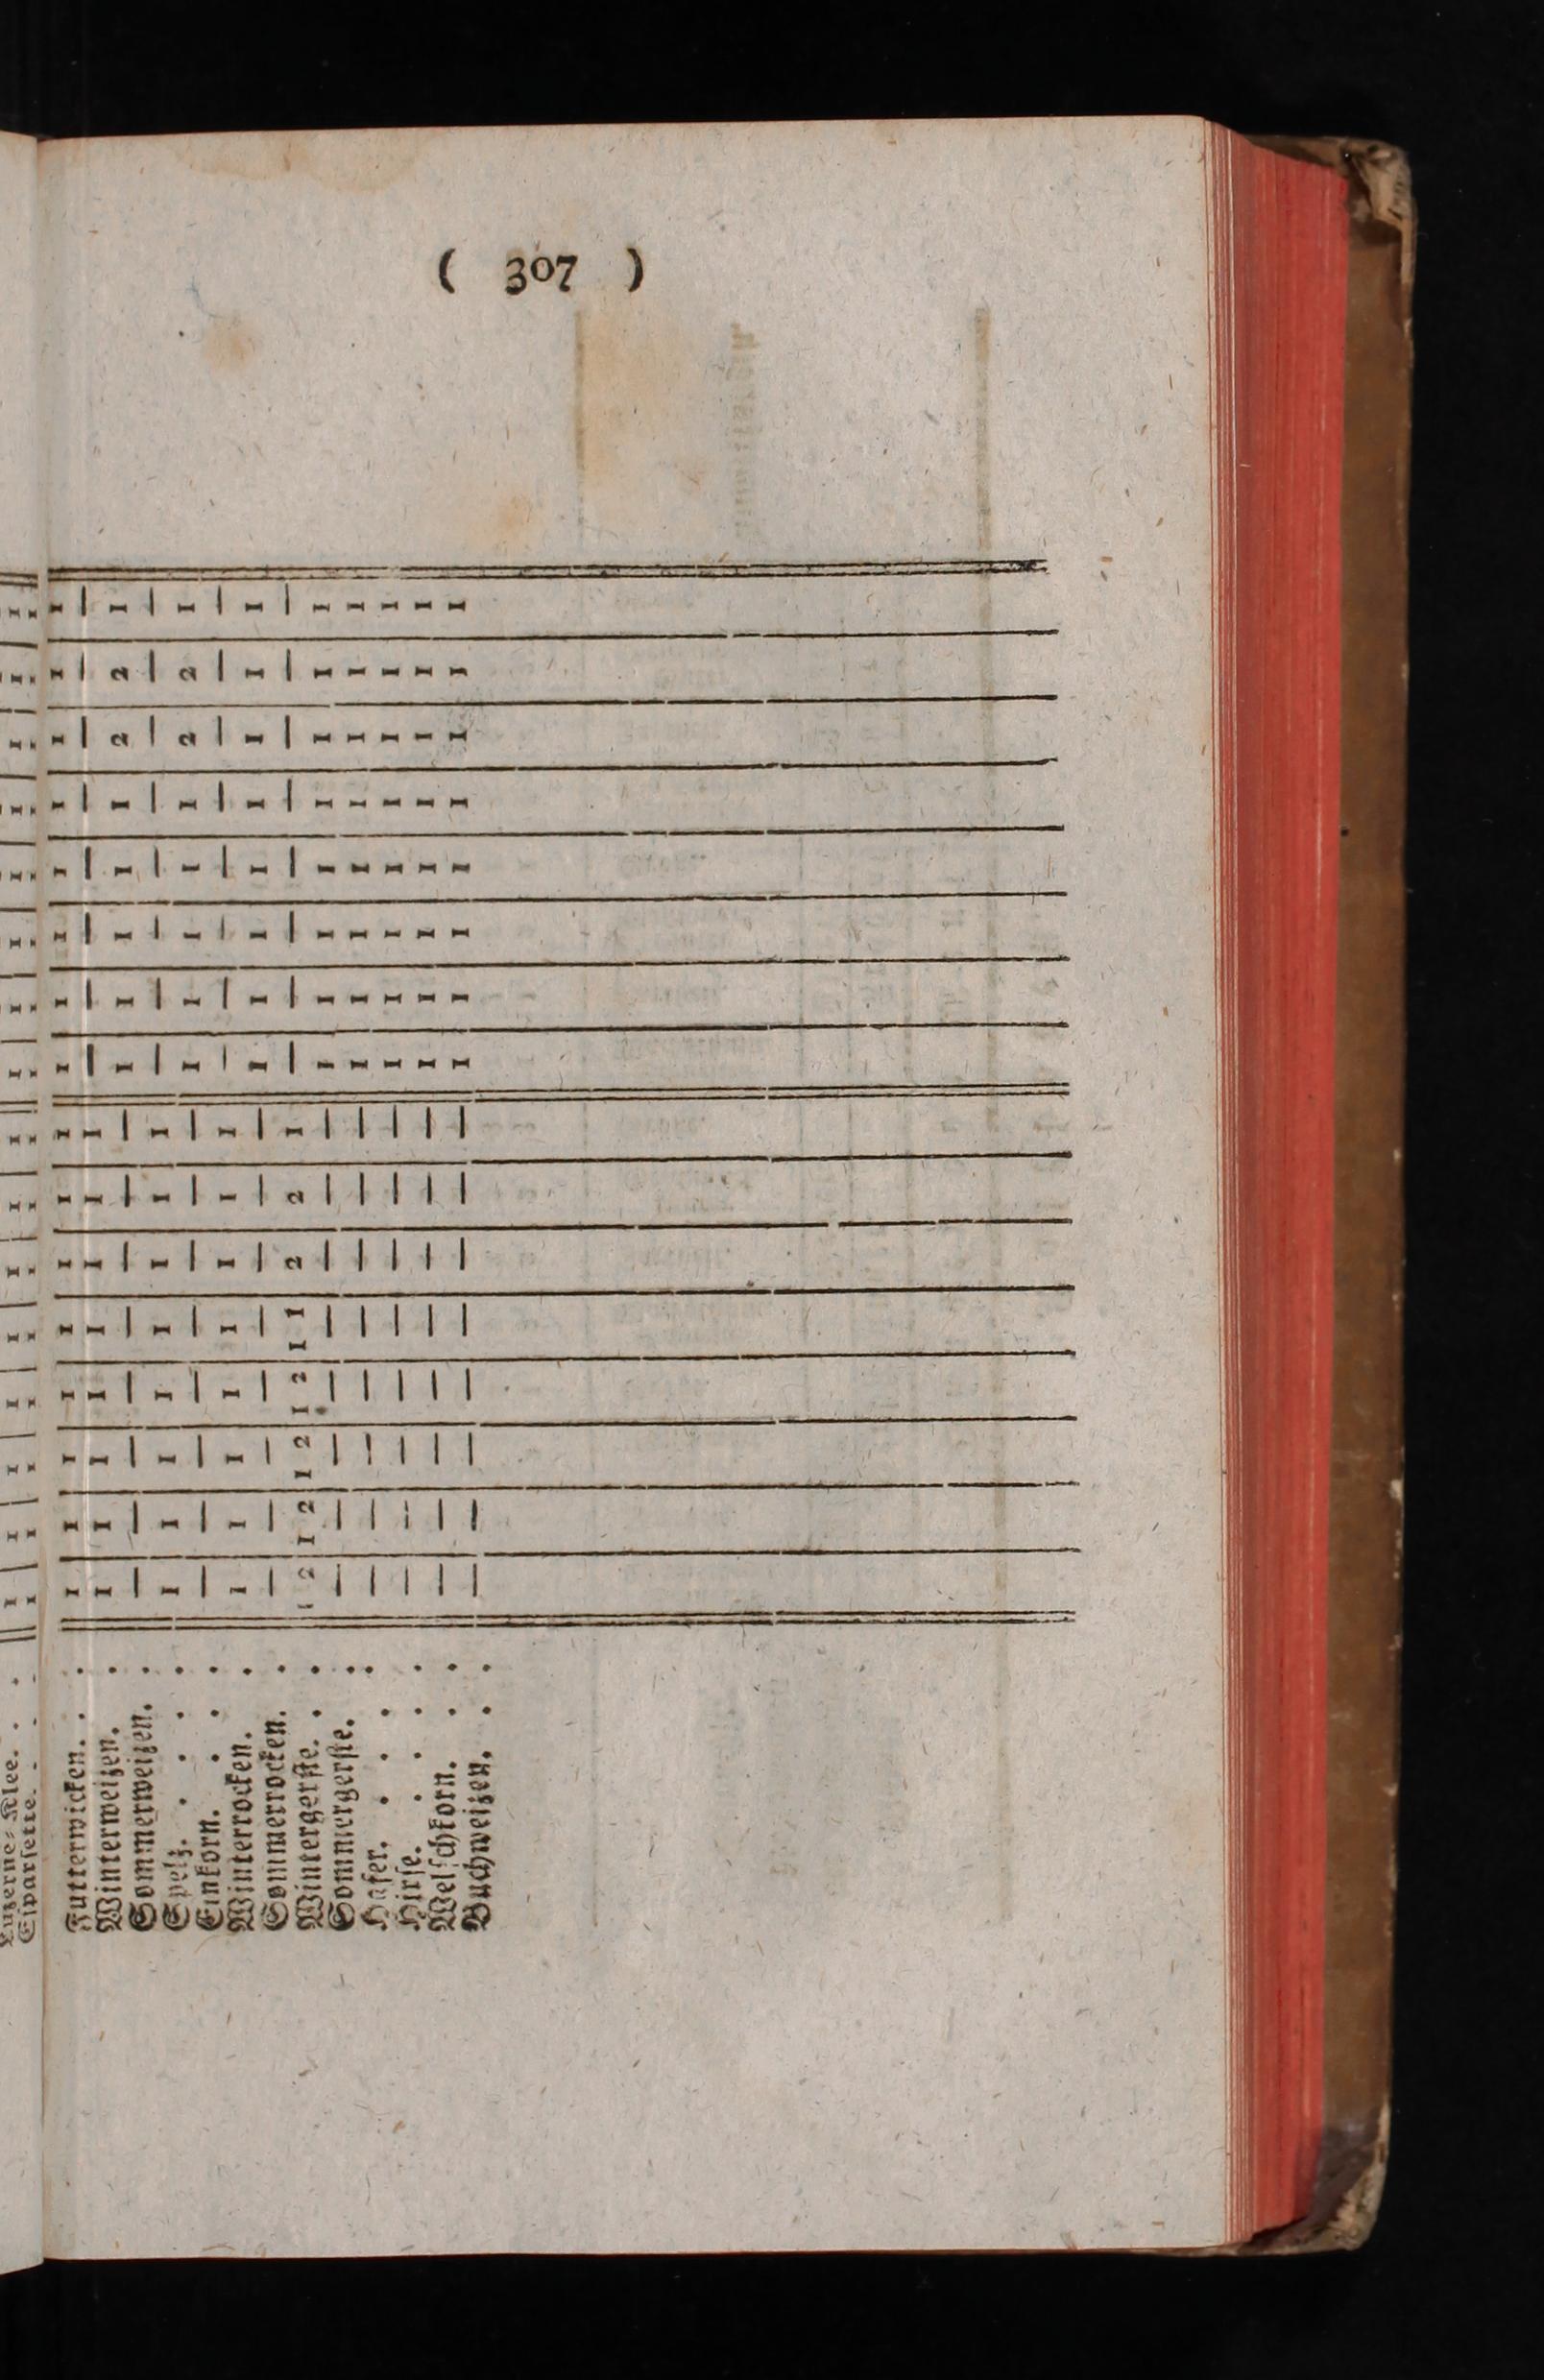 ( 307 )
Luzerne-Klee. . . 1 1 1 1 1 1 1 1 1 1 1 1 1 1 1 1
Esparsette. . . 1 1 1 1 1 1 1 1 1 1 1 1 1 1 1 1
Futterwicken. . . 1 1 1 1 1 1 1 1 1 1 1 1 1 1 1 1
Winterweizen. . 1 1 1 1 1 1 1 1 — — — — — — — —
Sommerweizen. . — — — — — — — — 1 1 1 1 1 2 2 1
Spelz. . . . . 1 1 1 1 1 1 1 1 — — — — — — — —
Einkorn. . . . — — — — — — — — 1 1 1 1 1 2 2 1
Winterrocken. . 1 1 1 1 1 1 1 1 — — — — — — — —
Sommerrocken. . — — — — — — — — 1 1 1 1 1 1 1 1
Wintergerste. . . 12 12 12 12 11 2 2 1 — — — — — — — —
Sommergerste. . — — — — — — — — 1 1 1 1 1 1 1 1
Hafer. . . . . — — — — — — — — 1 1 1 1 1 1 1 1
Hirse. . . . . — — — — — — — — 1 1 1 1 1 1 1 1
Welschkorn. . . — — — — — — — — 1 1 1 1 1 1 1 1
Buchweizen. . . — — — — — — — — 1 1 1 1 1 1 1 1